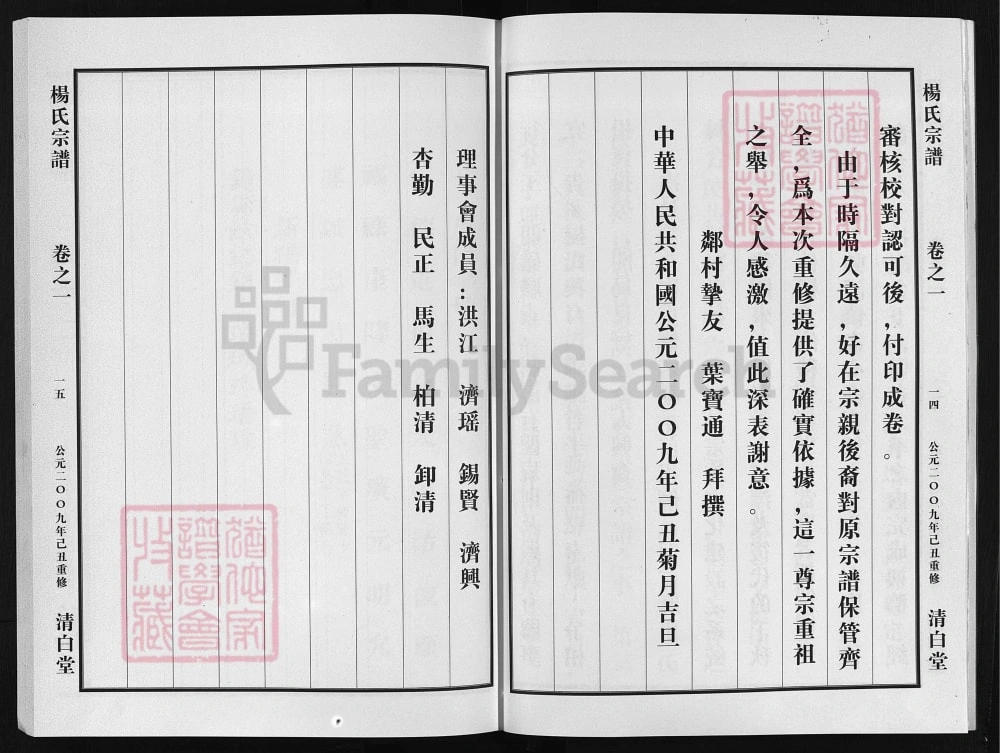 楊氏宗譜 卷之一 一四 公元二〇〇九年己丑重修 清白堂
審核校對認可後,付印成卷。
由于時隔久遠,好在宗親後裔對原宗譜保管齊
全,爲本次重修提供了確實依據,這一尊宗重祖
之舉,令人感激,值此深表謝意。
鄰村摯友 葉寶通 拜撰
中華人民共和國公元二〇〇九年己丑菊月吉旦
理事會成員:洪江 濟瑶 錫賢 濟興
杏勤 民正 馬生 柏清 卸清
楊氏宗譜 卷之一 一五 公元二〇〇九年己丑重修 清白堂
FamilySearch